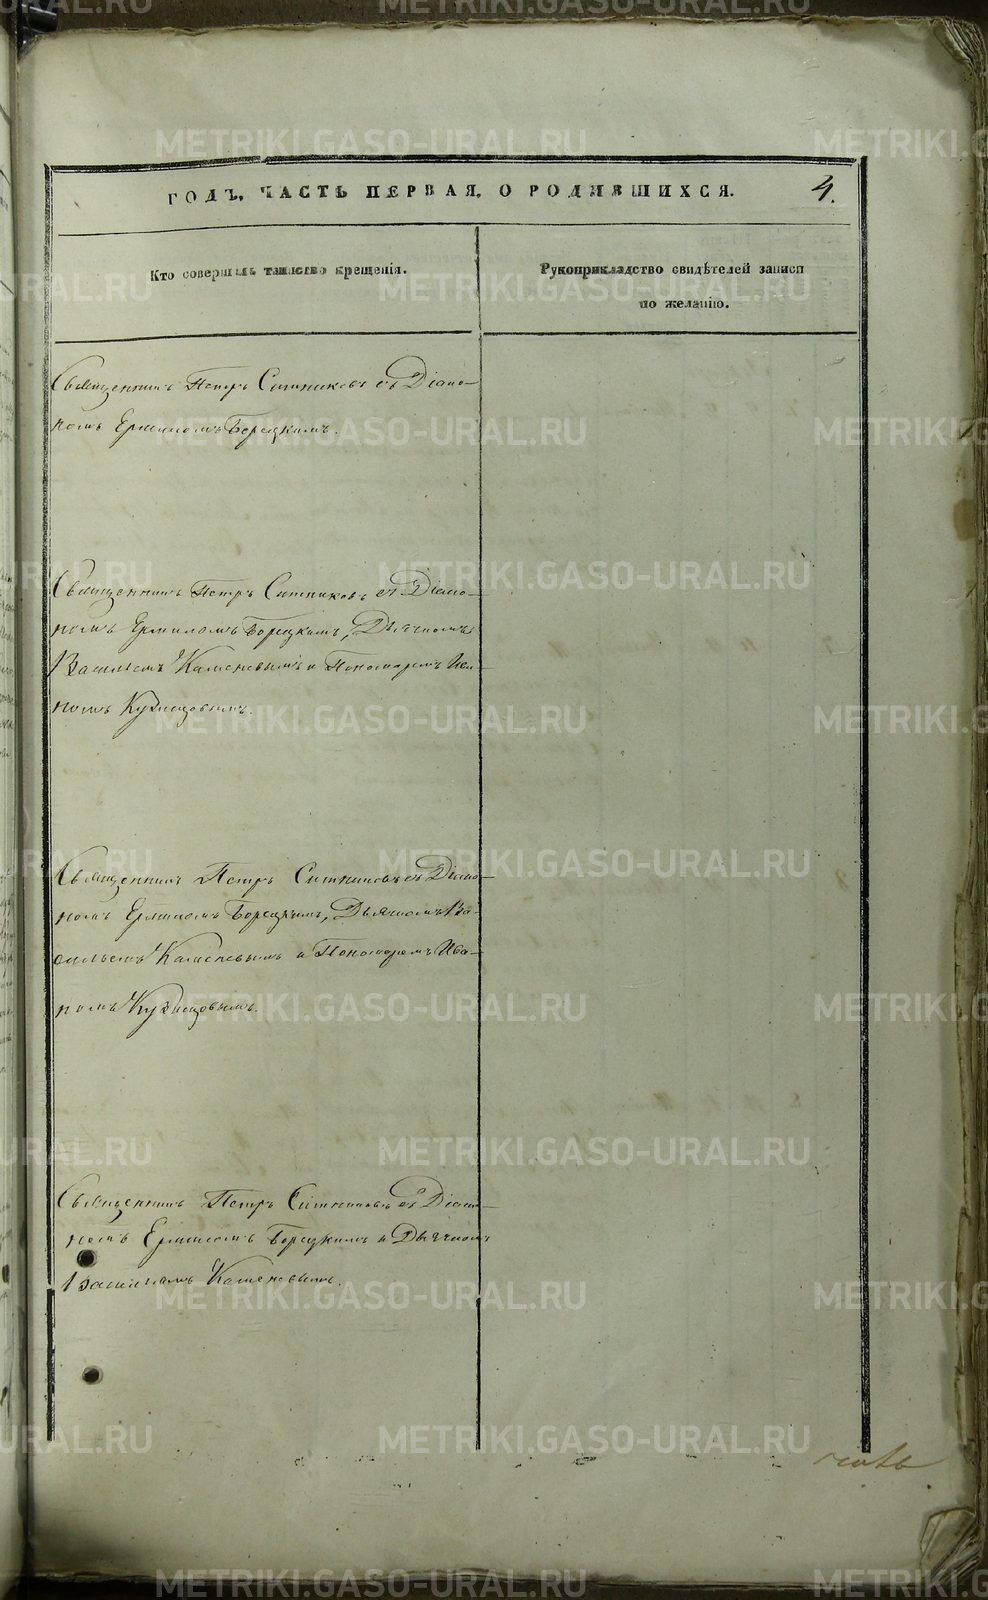 ГОДЪ, ЧАСТЬ ПЕРВАЯ, О РОДИВШИХСЯ. 4.
Кто совершалъ таинство крещенія.
Рукоприкладство свидѣтелей записи
по желанію.
Священникъ Петръ Ситниковъ съ Діако-
номъ Ермиломъ Борецкимъ.
Священникъ Петръ Ситниковъ съ Діако-
номъ Ермиломъ Борецкимъ, Дьячкомъ
Васильемъ Каменевымъ и Пономаремъ Ива-
номъ Кузнецовымъ.
Священникъ Петръ Ситниковъ съ Діако-
номъ Ермиломъ Борецкимъ, Дьячкомъ Ва-
сильемъ Каменевымъ и Пономаремъ Ива-
номъ Кузнецовымъ.
Священникъ Петръ Ситниковъ съ Діако-
номъ Ермиломъ Борецкимъ и Дьячкомъ
Васильемъ Каменевымъ.
METRIKI.GASO-URAL.RU